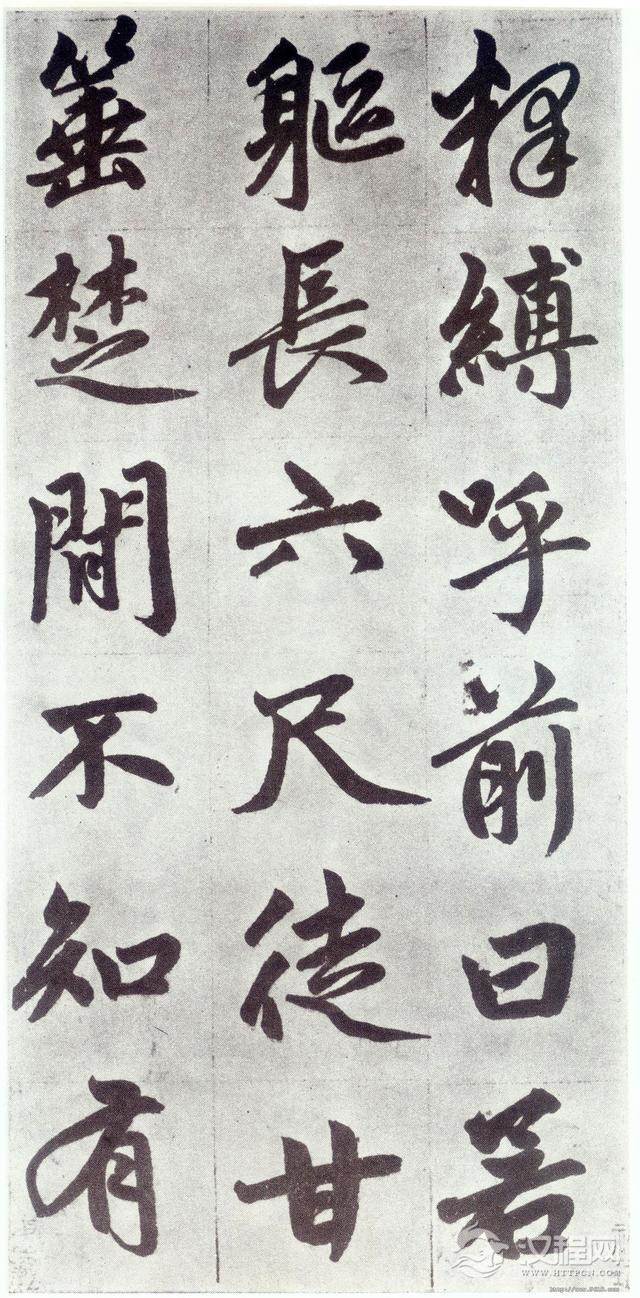 釋縛呼前曰若
軀長六尺徒甘
箠楚閒不知有
汉程网
WWW.HTTPCN.COM